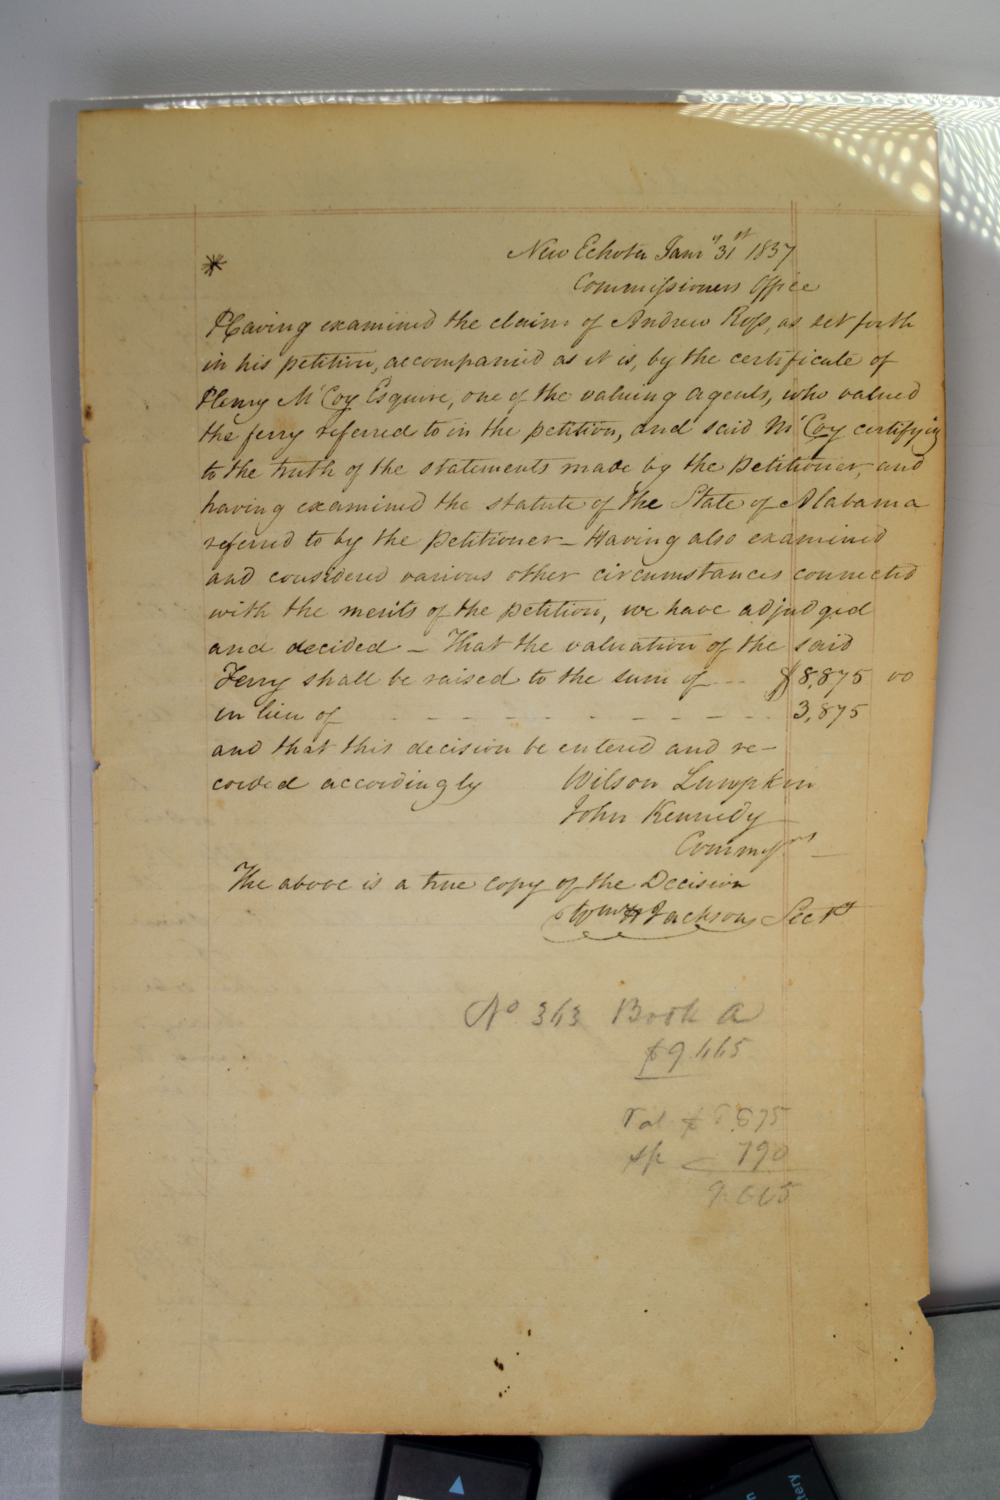 New Echota Jany 31st 1837
Commissioners Office
Having examined the claim of Andrew Ross, as set forth
in his petition, accompanied as it is, by the certificate of
Henry McCoy Esquire, one of the valuing agents, who valued
the ferry referred to in the petition, and said McCoy certifying
to the truth of the statements made by the petitioner, and
having examined the statute of the State of Alabama
referred to by the petitioner – Having also examined
and considered various other circumstances connected
with the merits of the petition, we have adjudged
and decided – That the valuation of the said
Ferry shall be raised to the sum of $8,875 00
in lieu of 3,875
and that this decision be entered and re-
corded accordingly Wilson Lumpkin
John Kennedy
Commrs
The above is a true copy of the Decision
Wm H Jackson Secty
No 363 Book A
$9.665
Val $8.875
sp 790
9.665
tery